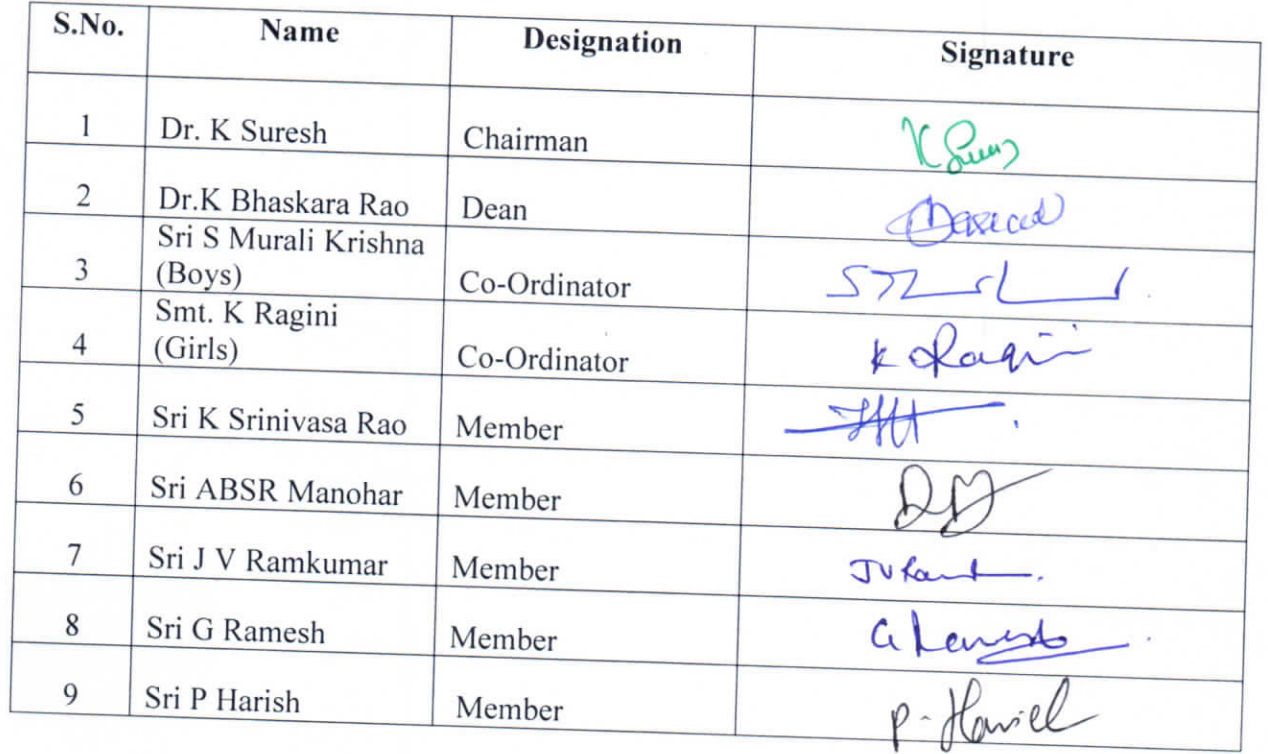 S.No. Name Designation Signature
1 Dr. K Suresh Chairman
2 Dr.K Bhaskara Rao Dean
Sri S Murali Krishna
3 (Boys) Co-Ordinator
Smt. K Ragini
4 (Girls) Co-Ordinator K Ragini
5 Sri K Srinivasa Rao Member
6 Sri ABSR Manohar Member
7 Sri J V Ramkumar Member
8 Sri G Ramesh Member G Ramesh
9 Sri P Harish Member P-Harish